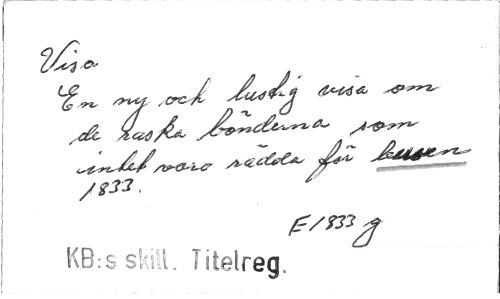 Visa
En ny och lustig visa om
de raska bönderna som
intet voro rädda för
1833.
E 1833 g
KB:s skill. Titelreg.